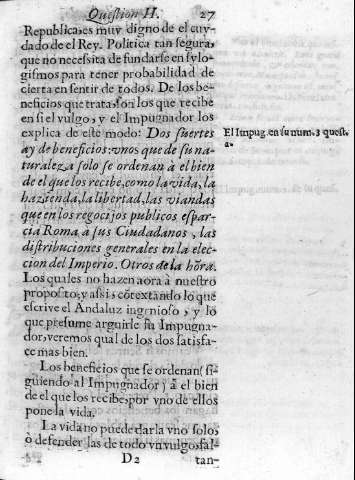 Question II. 27
Republica, es muy digno de el cuy-
dado de el Rey. Politica tan segura,
que no necessita de fundarse en sylo-
gismos para tener probabilidad de
cierta en sentir de todos. De los be-
neficios que trata, son los que recibe
en si el vulgo, y el Impugnador los
explica de este modo: Dos suertes
ay de beneficios: vnos que de su na-
turaleza solo se ordenan à el bien
de el que los recibe, como la vida, la
hazienda, la libertad, las viandas
que en los regocijos publicos espar-
cia Roma à sus Ciudadanos, las
distribuciones generales en la elec-
cion del Imperio. Otros de la hõra.
Los quales no hazen aora à nuestro
proposito; y assi, cõtextando lo que
escrive el Andaluz ingenioso, y lo
que presume arguirle su Impugna-
dor, veremos qual de los dos satisfa-
ce mas bien.
Los beneficios que se ordenan (si-
guiendo al Impugnador) à el bien
de el que los recibe, por vno de ellos
pone la vida.
La vida no puede darla vno solo,
ò defender las de todo vn vulgo, sal-
D2 tan-
El Impug. en su num. 3 quest.
2.